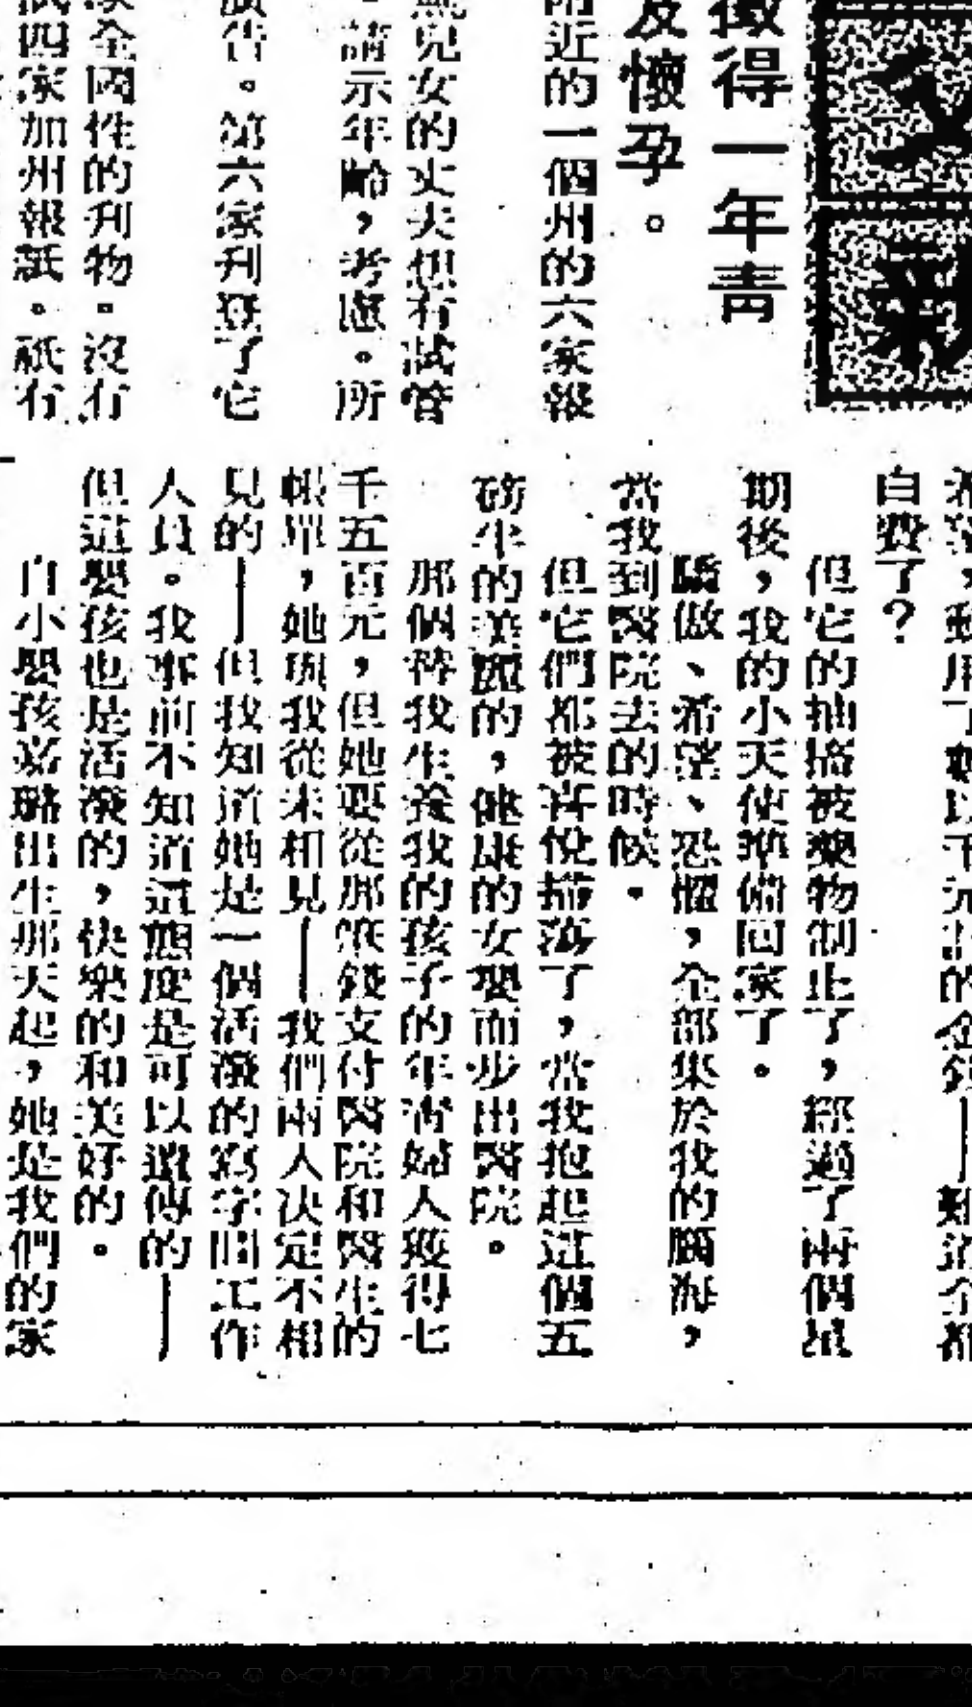 徵得一年青
懷孕。
附近的一個州的六家報
兒女的丈夫想有試管
請示年齡，考慮。所
廣告。第六家刋登了它
全國性的刋物。沒有
四家加州報紙。祇有
白費了？
但它的抽搐被藥物制止了，經過了兩個星
期後，我的小天使準備回家了。
驕傲、希望、恐懼，全部集於我的腦海，
當我到醫院去的時候。
但它們都被喜悅掃蕩了，當我抱起這個五
磅半的美麗的，健康的女嬰而步出醫院。
那個替我生養我的孩子的年青婦人獲得七
千五百元，但她要從那筆錢支付醫院和醫生的
帳單，她與我從未相見——我們兩人决定不相
見的——但我知道她是一個活潑的寫字間工作
人員。我事前不知道這態度是可以遺傳的——
但這嬰孩也是活潑的，快樂的和美好的。
自小嬰孩嘉璐出生那天起，她是我們的家